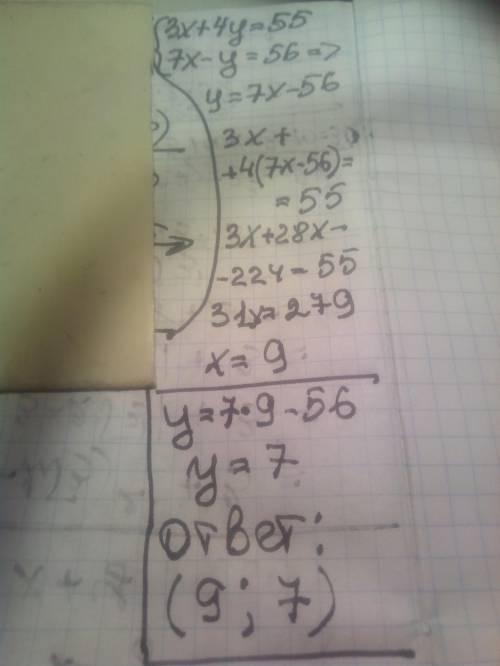 3x+4y=55
7x-y=56=>
y=7x-56
3x+
+4(7x-56)=
=55
3x+28x-
-224=55
31x=279
x=9
y=7·9-56
y=7
ответ:
(9;7)